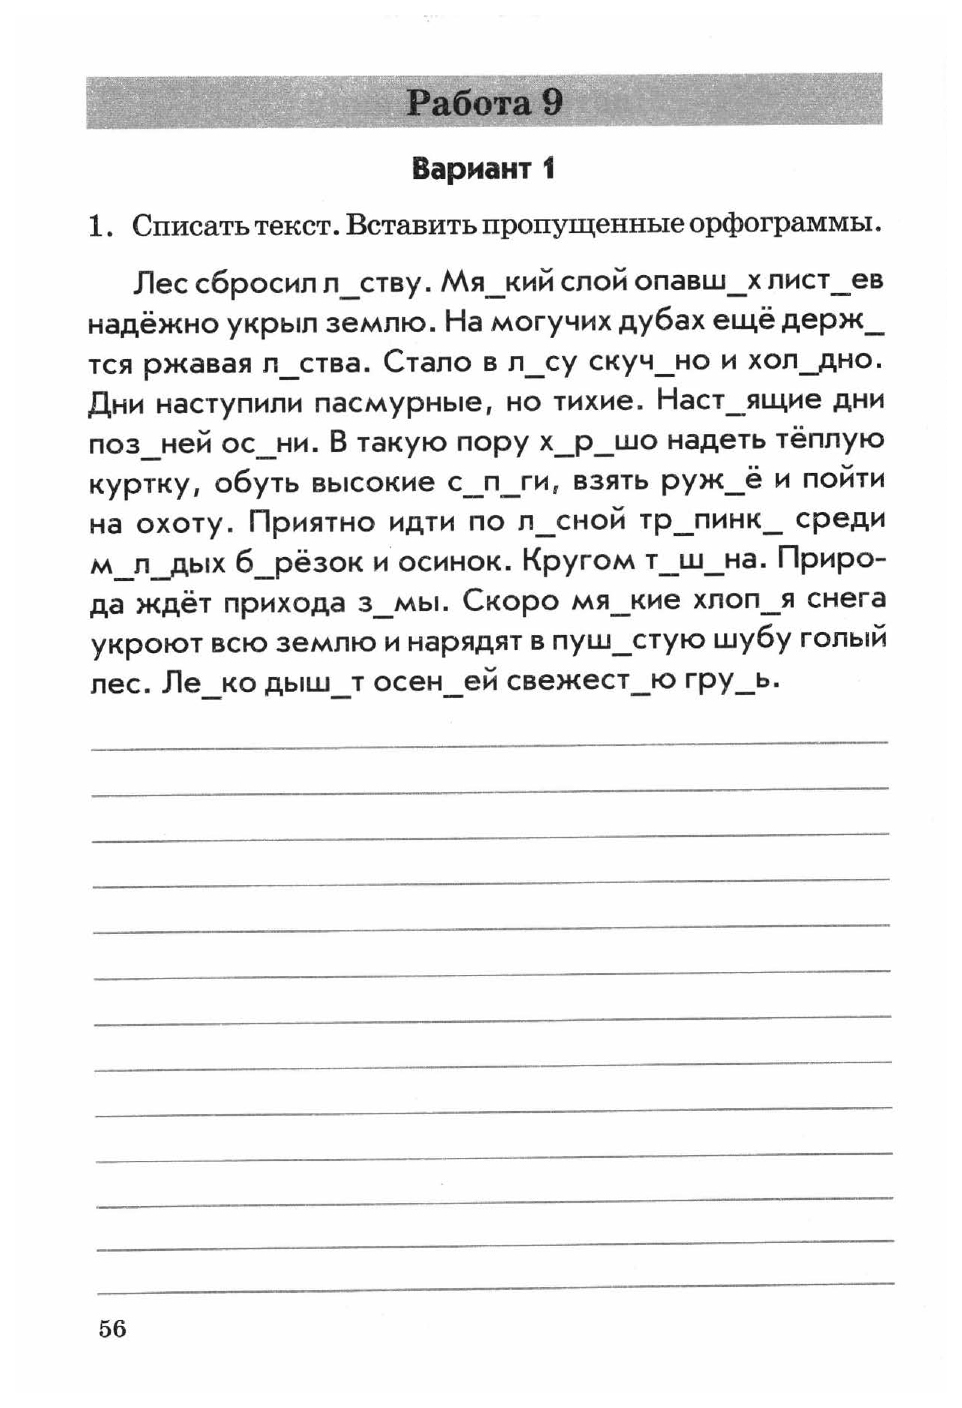 Работа 9
Вариант 1
1. Списать текст. Вставить пропущенные орфограммы.
Лес сбросил л_ству. Мя_кий слой опавш_х лист_ев
надёжно укрыл землю. На могучих дубах ещё держ_
тся ржавая л_ства. Стало в л_су скуч_но и хол_дно.
Дни наступили пасмурные, но тихие. Наст_ящие дни
поз_ней ос_ни. В такую пору х_р_шо надеть тёплую
куртку, обуть высокие с_п_ги, взять руж_ё и пойти
на охоту. Приятно идти по л_сной тр_пинк_ среди
м_л_дых б_рёзок и осинок. Кругом т_ш_на. Приро-
да ждёт прихода з_мы. Скоро мя_кие хлоп_я снега
укроют всю землю и нарядят в пуш_стую шубу голый
лес. Ле_ко дыш_т осен_ей свежест_ю гру_ь.
56